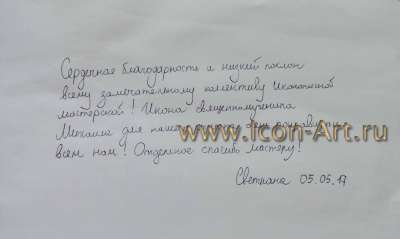 Сердечная благодарность и низкий поклон
всему замечательному колективу Иконописной
мастерской! Икона священномученика
Михаила для нашего
www.icon-Art.ru
всем нам! Отдельное спасибо мастеру!
Светлана 05.05.17